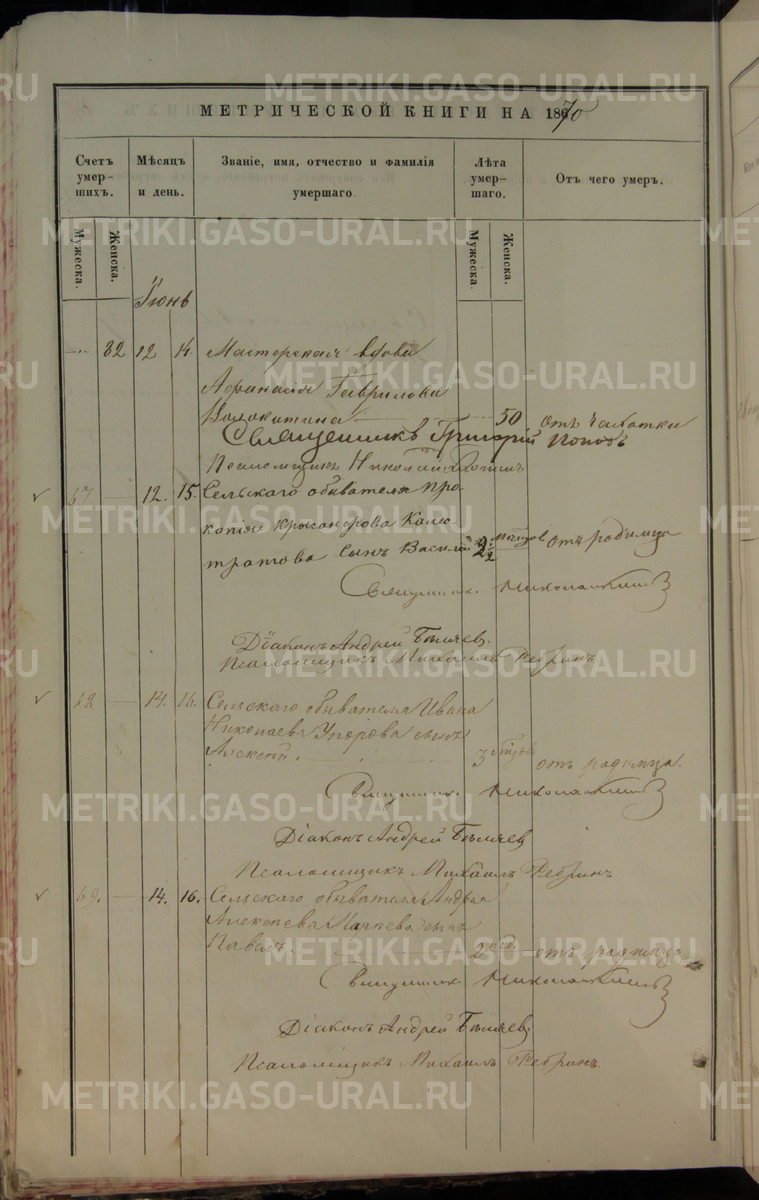 METRIKI.GASO-URAL.RU
МЕТРИЧЕСКОЙ КНИГИ НА 1870
Счетъ умер-шихъ.
Мѣсяцъ и день.
Званіе, имя, отчество и фамилія умершаго.
Лѣта умер-шаго.
Отъ чего умеръ.
Мужеска.
Женска.
Мужеска.
Женска.
Іюнь
82 12 14 Мастерская вдова
Афанасія Гаврилова
Волокитина 50 отъ чахотки
Священникъ Григорій Поповъ
Псаломщикъ Николай
67 12. 15. Сельскаго обывателя Про
копія Хрисанфова Калис
тратова сынъ Василій 2 1/2 мѣсяцов отъ родимца
Священник.
Діаконъ Андрей Бѣляев.
Псаломщикъ Михаилъ Ребринъ.
68 14. 16. Сельскаго обывателя Ивана
Николаева Упорова сынъ
Алексѣй. 3 отъ родимца.
Священник.
Діаконъ Андрей Бѣляев
Псаломщикъ Михаилъ Ребринъ
69. 14. 16. Сельскаго обывателя Андрея
Алексѣева сынъ
Павелъ 2 отъ родимца
Священник
Діаконъ Андрей Бѣляев.
Псаломщикъ Михаилъ Ребринъ